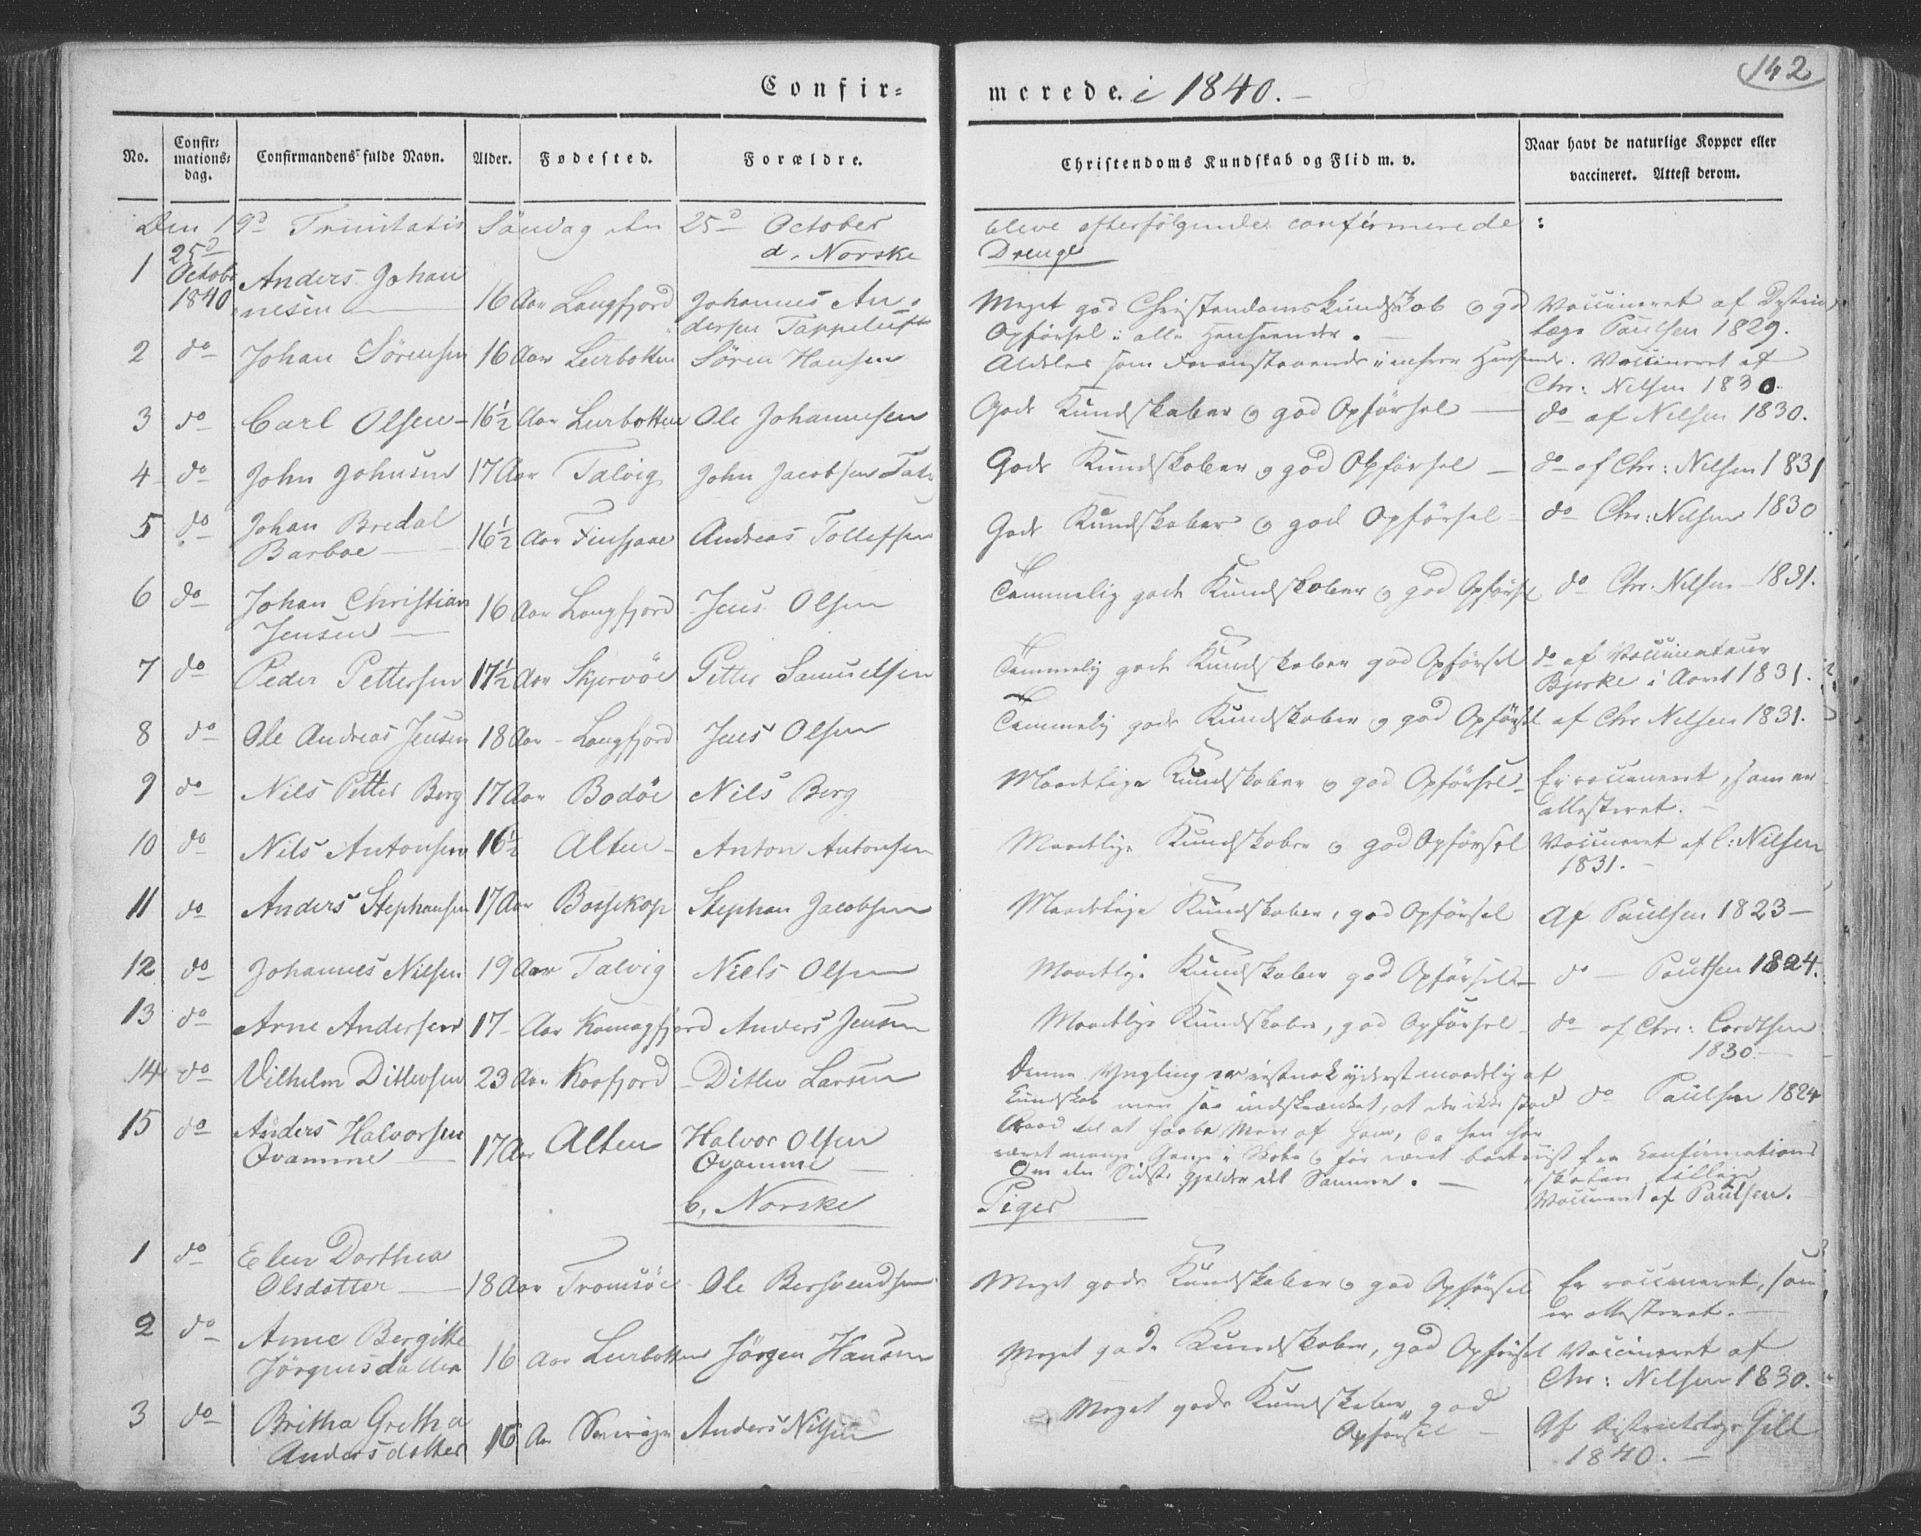 142
Confir-
merede. i 1840.
No. Confir-mations-dag. Confirmandens fulde Navn. Alder. Fødested. Forældre. Christendoms Kundskab og Flid m. v. Naar havt de naturlige Kopper eller vaccineret. Attest derom.
Den 19d Trinitatis Søndag den 25d October bleve efterfølgende confirmerede :
a. Norske Drenge
1 25d Octobr 1840 Anders Johan 16 Aar Langfjord Johannes An- Meget god Christendomskundskab og god Vaccineret af Distrikts
nesen dersen Tappeluft Opførsel i alle Henseender. læge Paulsen 1829.
2 do Johan Sørensen 16 Aar Lerbotten Søren Hansen Aldeles som Foranstaaende i enhver Henseende. Vaccineret af
Chr: Nilsen 1830.
3 do Carl Olsen 16½ Aar Lerbotten Ole Johannesen Gode Kundskaber og god Opførsel do af Nilsen 1830.
4 do John Johnsen 17 Aar Talvig John Jacobsen Gode Kundskaber og god Opførsel do af Chr: Nilsen 1831
5 do Johan Bredal 16½ Aar Andreas Tollefsen Gode Kundskaber og god Opførsel do Chr: Nilsen 1830
Barboe
6 do Johan Christian 16 Aar Langfjord Jens Olsen Temmelig gode Kundskaber og god Opførsel do Chr: Nilsen 1831.
Jensen
7 do Peder Pettersen 17½ Aar Skjervöe Petter Samuelsen Temmelig gode Kundskaber god Opførsel do af Vaccinateur
Bjerke i Aaret 1831.
8 do Ole Andreas Jensen 18 Aar Langfjord Jens Olsen Temmelig gode Kundskaber og god Opførsel af Chr Nilsen 1831.
9 do Nils Petter Berg 17 Aar Bodöe Nils Berg Maadelige Kundskaber og god Opførsel Er vaccineret, som er
attesteret.
10 do Nils Antonsen 16½ Alten Anton Antonsen Maadelige Kundskaber og god Opførsel Vaccineret af C: Nilsen
1831.
11 do Anders Stephansen 17 Aar Bossekop Stephan Jacobsen Maadelige Kundskaber, god Opførsel Af Paulsen 1823
12 do Johannes Nilsen 19 Aar Talvig Niels Olsen Maadelige Kundskaber god Opførsel do Paulsen 1824.
13 do Arne Andersen 17 Aar Komagfjord Anders Jensen Maadelige Kundskaber, god Opførsel do af Chr: Cordtsen
1830.
14 do Vilhelm Ditlevsen 23 Aar Kaafjord Ditlev Larsen Denne Yngling er vistnok yderst maadelig af
Kundskab men saa indskrænket, at der ikke stod do Paulsen 1824
15 do Anders Halvorsen 17 Aar Alten Halvor Olsen Raad til at haabe Mere af ham, da han har
Qvamme Qvamme været mange Gange i Skole og før været bortvist fra Confirmations
Om den Sidste gjelder det Samme. skolen
Vaccineret af Paulsen.
b. Norske Piger
1 do Elen Dorthea
Olsdatter 18 Aar Tromsöe Ole Bersvendsen Meget gode Kundskaber og god Opførsel Er vaccineret, som
er attesteret.
2 do Anne Bergitte
Jørgensdatter 16 Aar Lerbotten Jørgen Hansen Meget gode Kundskaber, god Opførsel Vaccineret af
Chr: Nilsen 1830.
3 do Britha Gretha
Andersdatter 16 Aar Anders Nilsen Meget gode Kundskaber, god
Opførsel Af Districtslæge Hill
1840.